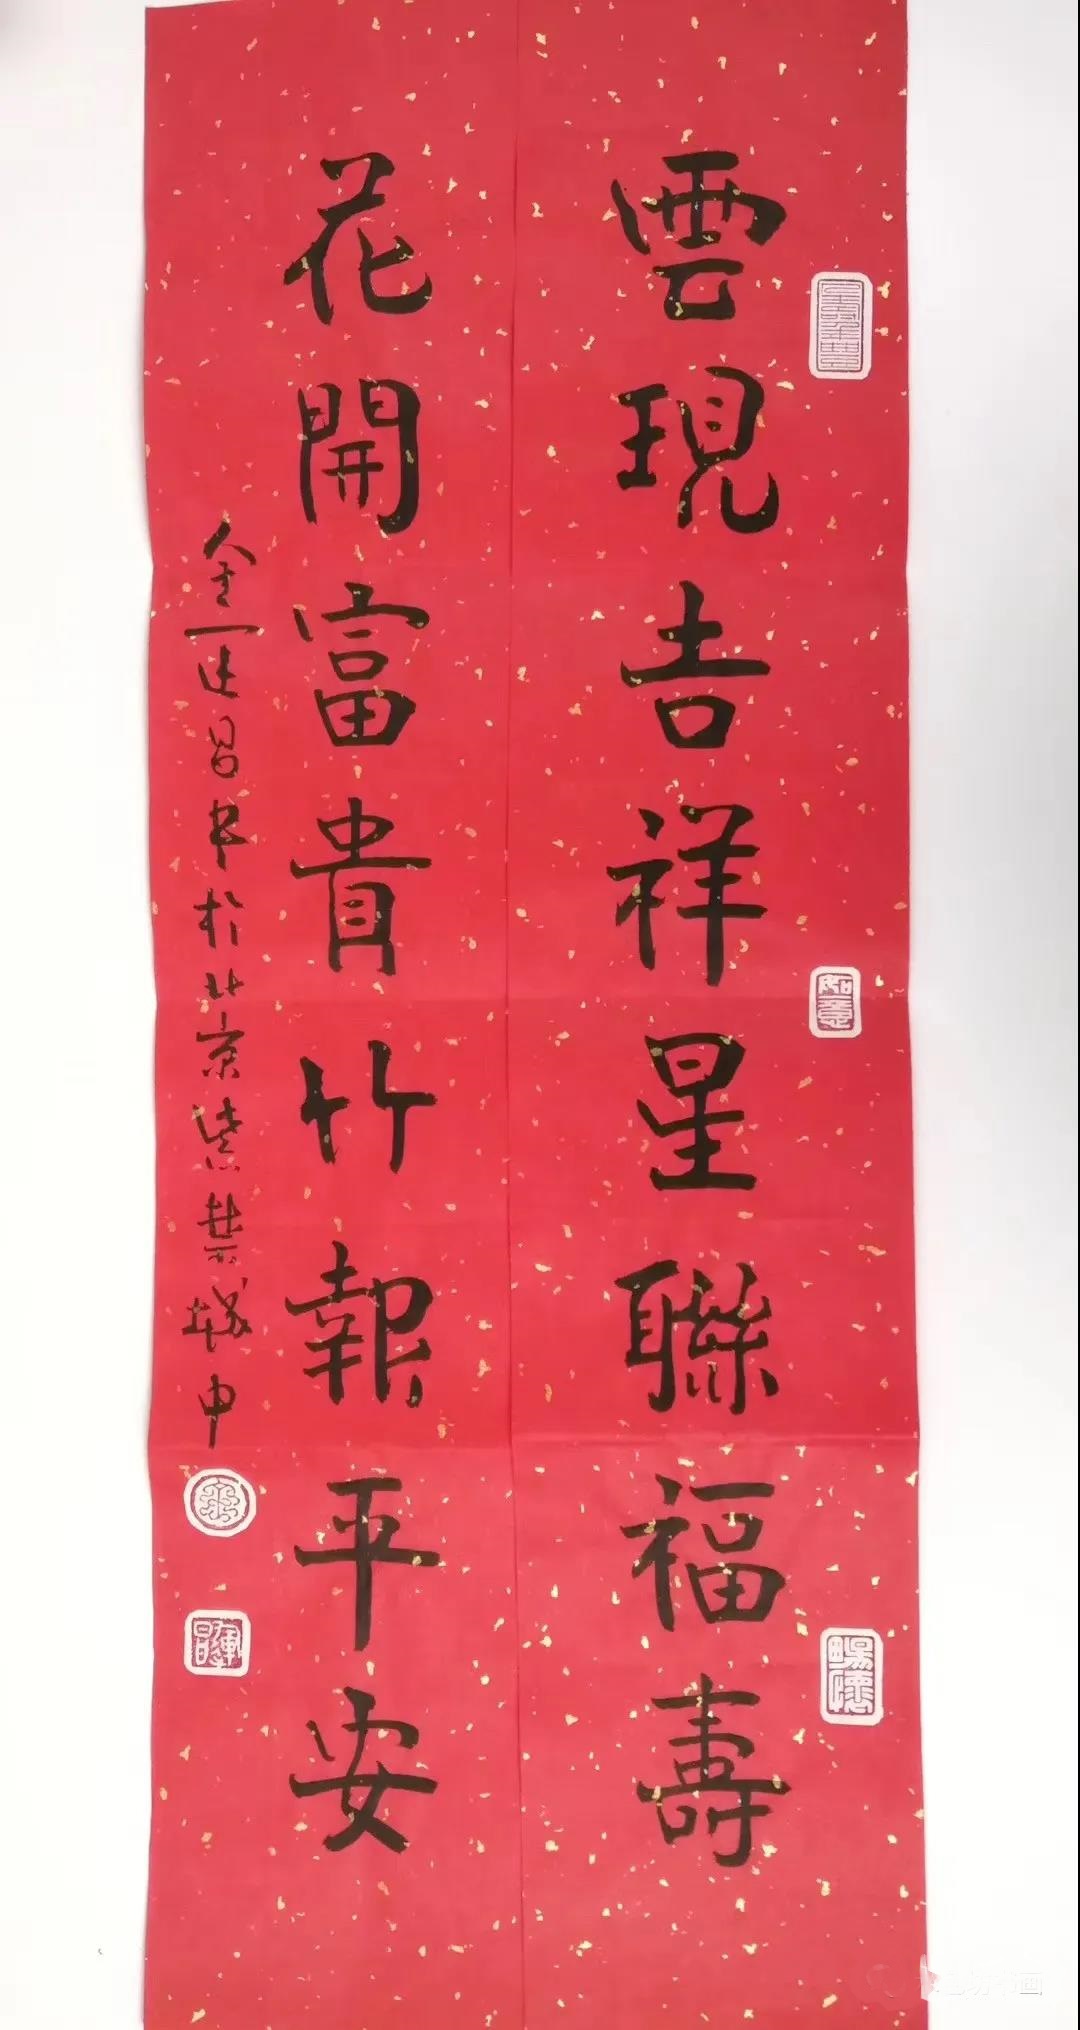 雲現吉祥星聯福壽
花開富貴竹報平安
書於北京紫禁城中
如意
暢懷